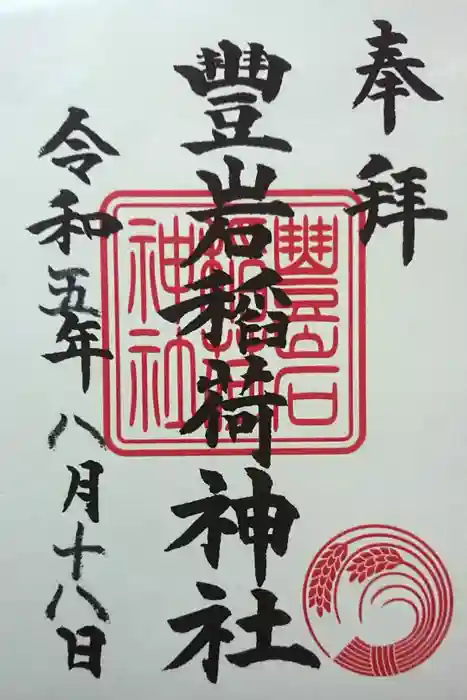 奉拝
豐岩稲荷神社
豐岩
稲荷
神社
令和五年八月十八日